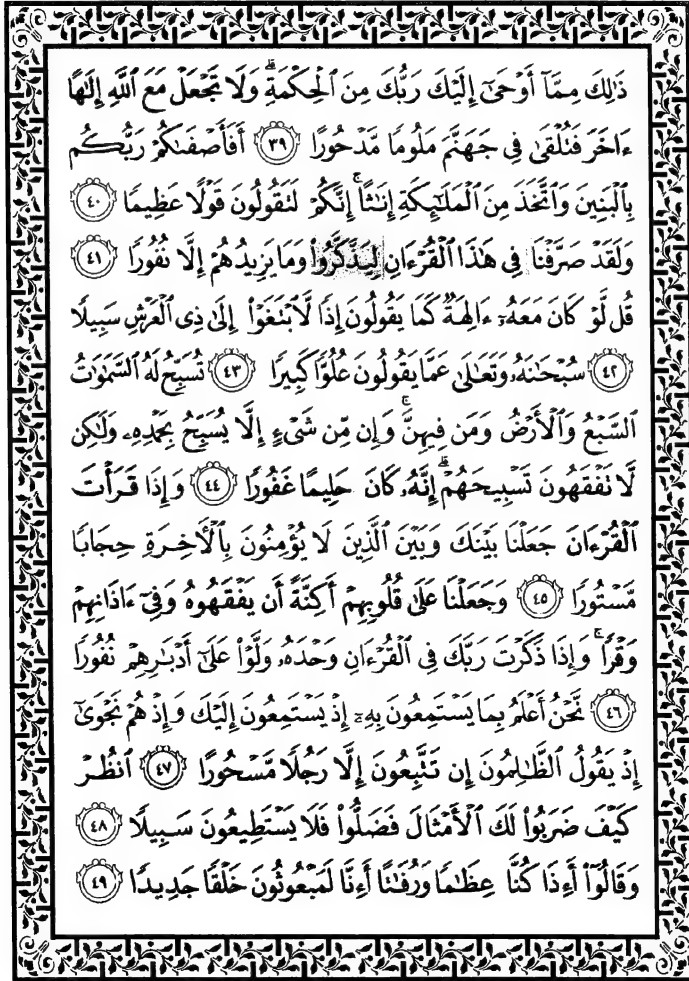 ذَٰلِكَ مِمَّآ أَوۡحَىٰٓ إِلَيۡكَ رَبُّكَ مِنَ ٱلۡحِكۡمَةِۗ وَلَا تَجۡعَلۡ مَعَ ٱللَّهِ إِلَٰهًا
ءَاخَرَ فَتُلۡقَىٰ فِي جَهَنَّمَ مَلُومٗا مَّدۡحُورًا ٣٩ أَفَأَصۡفَىٰكُمۡ رَبُّكُم
بِٱلۡبَنِينَ وَٱتَّخَذَ مِنَ ٱلۡمَلَٰٓئِكَةِ إِنَٰثًاۚ إِنَّكُمۡ لَتَقُولُونَ قَوۡلًا عَظِيمٗا ٤٠
وَلَقَدۡ صَرَّفۡنَا فِي هَٰذَا ٱلۡقُرۡءَانِ لِيَذَّكَّرُواْ وَمَا يَزِيدُهُمۡ إِلَّا نُفُورٗا ٤١
قُل لَّوۡ كَانَ مَعَهُۥٓ ءَالِهَةٞ كَمَا يَقُولُونَ إِذٗا لَّٱبۡتَغَوۡاْ إِلَىٰ ذِي ٱلۡعَرۡشِ سَبِيلٗا
٤٢ سُبۡحَٰنَهُۥ وَتَعَٰلَىٰ عَمَّا يَقُولُونَ عُلُوّٗا كَبِيرٗا ٤٣ تُسَبِّحُ لَهُ ٱلسَّمَٰوَٰتُ
ٱلسَّبۡعُ وَٱلۡأَرۡضُ وَمَن فِيهِنَّۚ وَإِن مِّن شَيۡءٍ إِلَّا يُسَبِّحُ بِحَمۡدِهِۦ وَلَٰكِن
لَّا تَفۡقَهُونَ تَسۡبِيحَهُمۡۗ إِنَّهُۥ كَانَ حَلِيمًا غَفُورٗا ٤٤ وَإِذَا قَرَأۡتَ
ٱلۡقُرۡءَانَ جَعَلۡنَا بَيۡنَكَ وَبَيۡنَ ٱلَّذِينَ لَا يُؤۡمِنُونَ بِٱلۡأٓخِرَةِ حِجَابٗا
مَّسۡتُورٗا ٤٥ وَجَعَلۡنَا عَلَىٰ قُلُوبِهِمۡ أَكِنَّةً أَن يَفۡقَهُوهُ وَفِيٓ ءَاذَانِهِمۡ
وَقۡرٗاۚ وَإِذَا ذَكَرۡتَ رَبَّكَ فِي ٱلۡقُرۡءَانِ وَحۡدَهُۥ وَلَّوۡاْ عَلَىٰٓ أَدۡبَٰرِهِمۡ نُفُورٗا
٤٦ نَّحۡنُ أَعۡلَمُ بِمَا يَسۡتَمِعُونَ بِهِۦٓ إِذۡ يَسۡتَمِعُونَ إِلَيۡكَ وَإِذۡ هُمۡ نَجۡوَىٰٓ
إِذۡ يَقُولُ ٱلظَّٰلِمُونَ إِن تَتَّبِعُونَ إِلَّا رَجُلٗا مَّسۡحُورًا ٤٧ ٱنظُرۡ
كَيۡفَ ضَرَبُواْ لَكَ ٱلۡأَمۡثَالَ فَضَلُّواْ فَلَا يَسۡتَطِيعُونَ سَبِيلٗا ٤٨
وَقَالُوٓاْ أَءِذَا كُنَّا عِظَٰمٗا وَرُفَٰتًا أَءِنَّا لَمَبۡعُوثُونَ خَلۡقٗا جَدِيدٗا ٤٩